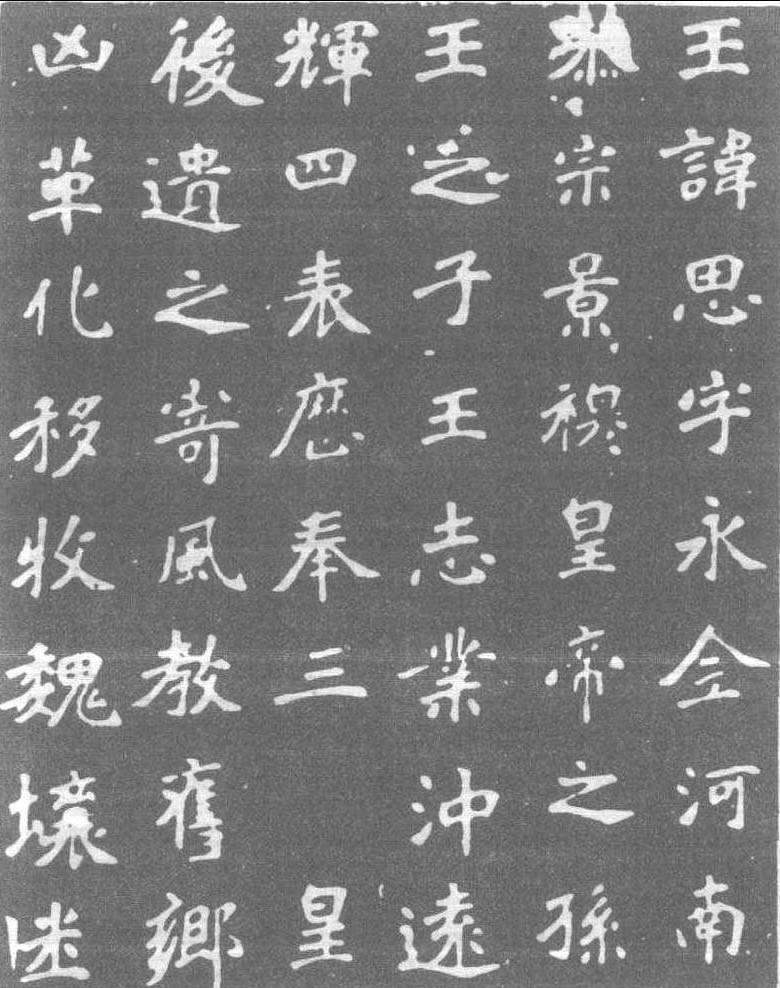 王諱思字永全河南
恭宗景穆皇帝之孫
王之子王志業沖遠
輝四表歷奉三皇
後遺之寄風教舊鄉
凶革化移牧魏壤